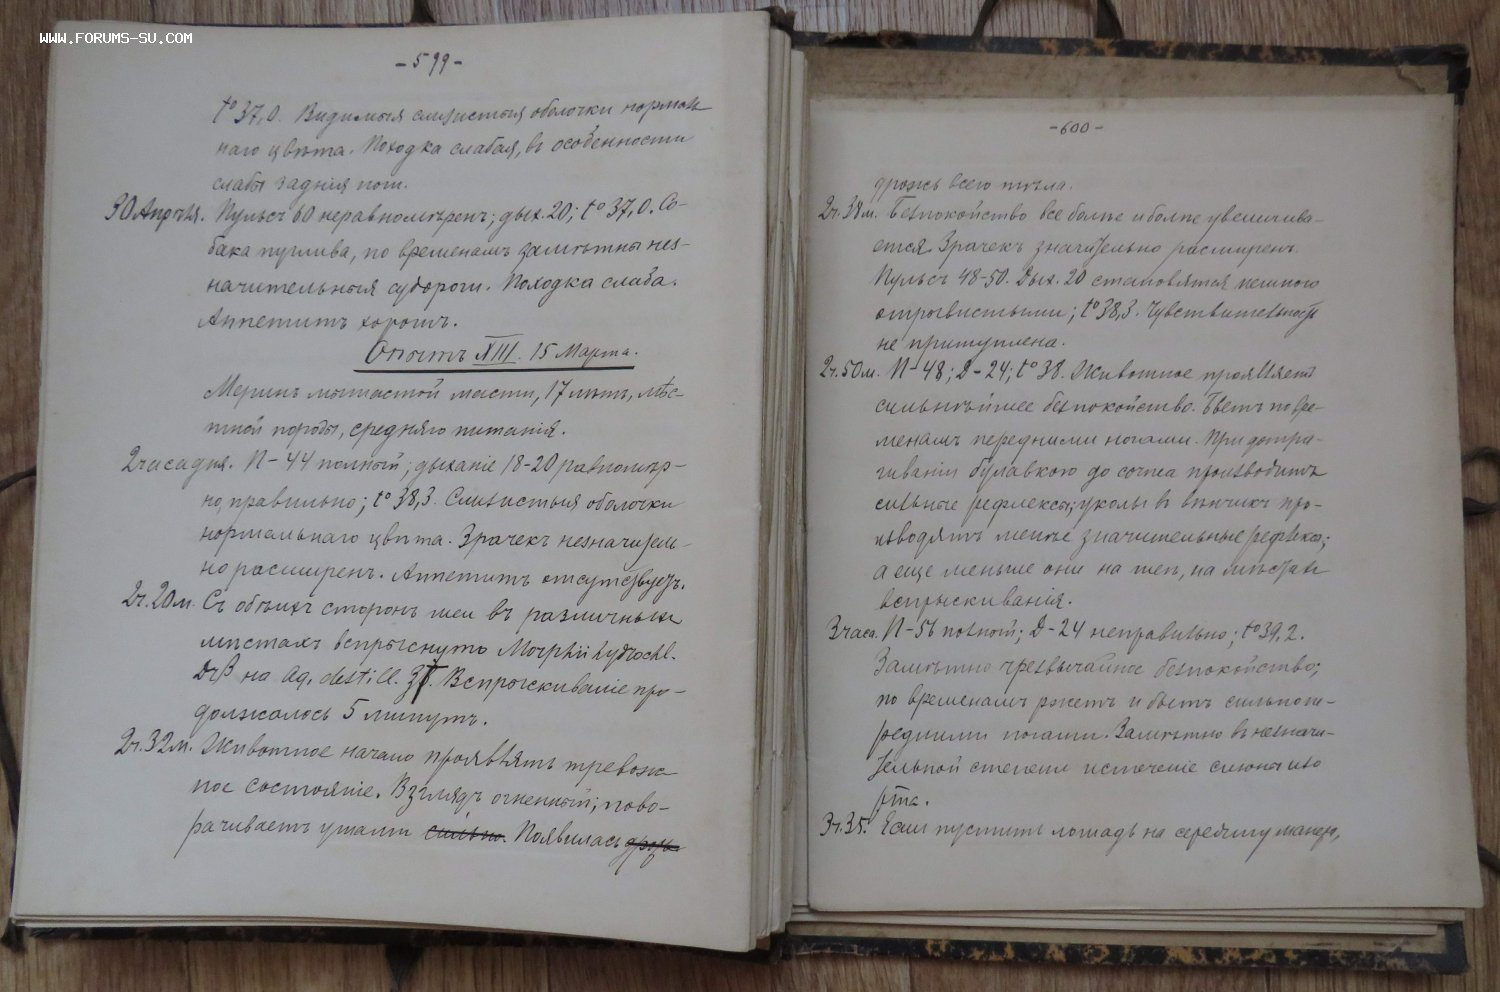 WWW.FORUMS-SU.COM
-599-
t° 37,0. Видимыя слизистыя оболочки нормаль
наго цвѣта. Походка слабая, въ особенности
слабы заднія ноги.
30 Апрѣля. Пульсъ 60 неравномѣренъ; дых. 20; t° 37,0. Со-
бака пуглива, по временамъ замѣтны нез-
начительныя судороги. Походка слаба.
Аппетитъ хорошъ.
Опытъ XIII. 15 Марта.
Меринъ мышастой масти, 17 лѣтъ, мѣс-
тной породы, средняго питанія.
2 часа дня. П-44 полный; дыханіе 18-20 равномѣр-
но, правильно; t° 38,3. Слизистыя оболочки
нормальнаго цвѣта. Зрачекъ незначитель-
но расширенъ. Аппетитъ отсутствуетъ.
2ч. 20м. Съ обѣихъ сторонъ шеи въ различныхъ
мѣстахъ вспрыснуто Morphii hydrochl.
на aq. destill. Вспрыскиваніе про-
должалось 5 минутъ.
2ч. 32м. Животное начало проявлять тревож
ное состояніе. Взглядъ огненный; пово-
рачиваетъ ушами сильно. Появилась дрожь
-600-
дрожь всего тѣла.
2ч. 38м. Безпокойство все болѣе и болѣе увеличива-
ется. Зрачекъ значительно расширенъ.
Пульсъ 48-50. Дых. 20 становятся немного
отрывистыми; t° 38,3. Чувствительность
не притуплена.
2ч. 50м. П-48; Д-24; t° 38. Животное проявляетъ
сильнѣйшее безпокойство. Бьетъ по вре-
менамъ передними ногами. При дотра-
гиваніи булавкою до сочка производитъ
сильные рефлексы; уколы въ вѣнчикъ про-
изводятъ менѣе значительные рефлексы;
а еще меньше они на шеѣ, на мѣстахъ
вспрыскиванія.
3 часа. П-56 полный; Д-24 неправильно; t° 39,2.
Замѣтно чрезвычайное безпокойство;
по временамъ ржетъ и бьетъ сильно пе-
редними ногами. Замѣтно въ незначи-
тельной степени истеченіе слюны изо
рта.
3ч. 35. Если пустить лошадь на середину манежа,